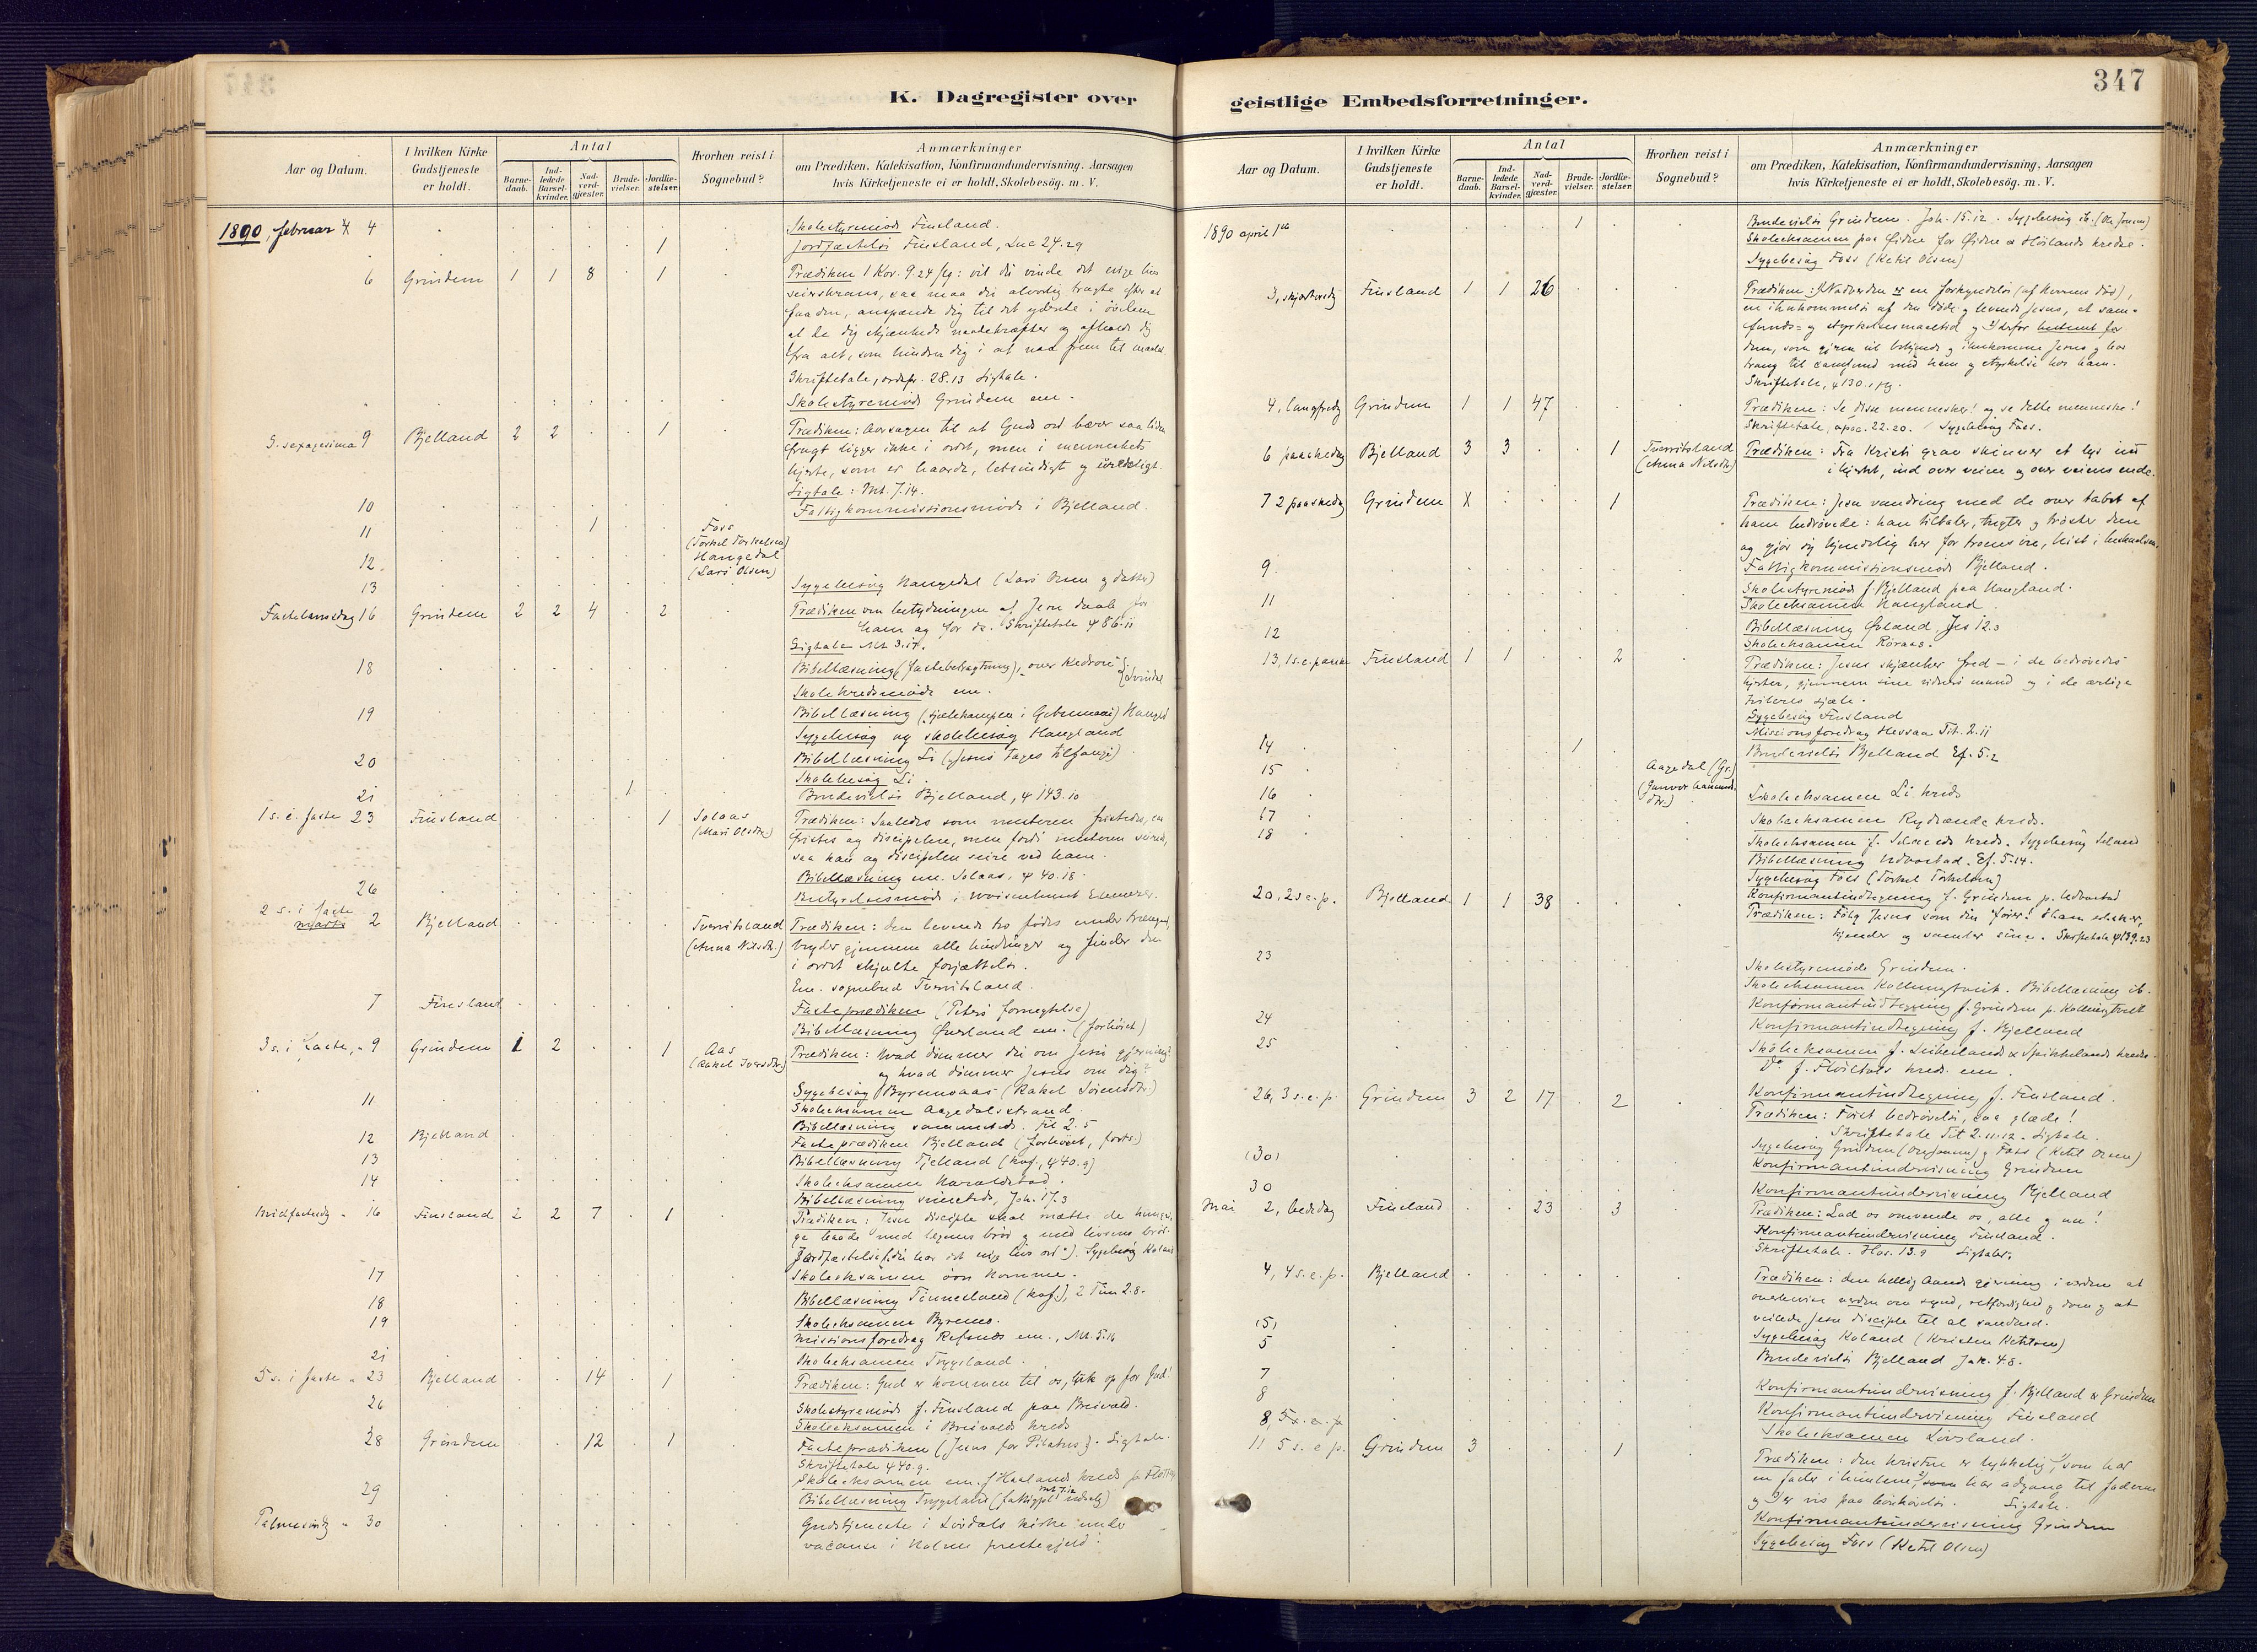 347
K. Dagregister over geistlige Embedsforretninger.
Aar og Datum.
I hvilken Kirke Gudstjeneste er holdt.
Antal
Barne-daab.
Ind-ledede Barsel-kvinder.
Nad-verd-gjæster.
Brude-vielser.
Jordfæ-stelser.
Hvorhen reist i Sognebud?
Anmærkninger
om Prædiken, Katekisation, Konfirmandundervisning, Aarsagen
hvis Kirketjeneste ei er holdt, Skolebesøg. m. V.
1890, februar 4 Skolestyremøde Finsland.
1 Jordfæstelse Finsland, Luc 24.29
6 Grindem 1 1 8 1 Prædiken 1 Kor. 9.24 flg: vil du vinde det evige livs
seierskrans, saa maa du alvorlig tragte efter at
faa den, anspænde dig til det yderste i
fra alt, som hindrer dig i at naa frem til maalet.
Skriftetale, ordspr. 28.13 Ligtale.
Skolestyremøde Grindem em.
S. sexagesima 9 Bjelland 2 2 1 Prædiken: Aarsagen til at Guds ord bærer saa liden
frugt ligger ikke i ordet, men i menneskets
hjerte, som er haardt, letsindigt og
Ligtale: Mt. 7.14.
10 Fattigkommissionsmøde i Bjelland.
11 1 Foss
(Torkel Torkelsen)
12 Haugedal
(Lars Olsen)
13 Sygebesøg Haugedal (Lars Olsen og datter)
Fastelavnsdag 16 Grindem 2 2 4 2 Prædiken om betydningen af Jesu daab for
ham og for os. Skriftetale ψ 86.11
Ligtale Mt 3.17.
18 Bibellæsning (fastebetragtning), over Kedron
Skolekredsmøde em.
19 Bibellæsning (sjælekampen i Getsemane)
Sygebesøg og skolebesøg Haugland
20 Bibellæsning Li (Jesus tages tilfange)
Skolebesøg Li.
21 1 Brudevielse Bjelland, ψ 143.10
1 s. i faste 23 Finsland 1 Solaas
(Mari Olsdtr.)
Prædiken: Saaledes som mesteren fristedes,
fristes og disciplene, men fordi mesteren seired,
saa kan og disciplen seire ved ham.
Bibellæsning em. Solaas, ψ 40.18.
26 Bestyrelsesmøde i
2 s. i faste
marts 2 Bjelland Tverritsland
(Anna Nilsdtr.)
Prædiken: den levende tro fødes under trængsel,
bryder gjennem alle hindringer og finder den
i ordet skjulte forjættelse.
Em. sognebud Tverritsland.
7 Finsland Fasteprædiken (Peters fornegtelse)
Bibellæsning Øvland em. (forhøret)
3 s. i faste, 9 Grindem 1 2 1 Aas
(Rakel Iversdtr.)
Prædiken: Hvad dømmer du om Jesu gjerning?
og hvad dømmer Jesus om dig?
Sygebesøg Byremoaas (Rakel
11 Skoleeksamen Aagedalsstrand
Bibellæsning sammesteds. Fil 2.5
12 Bjelland Fasteprædiken Bjelland (forhøret, forts.)
13 Bibellæsning Fjelland (kaf., ψ 40.9)
14 Skoleeksamen Haraldstad.
Bibellæsning Joh. 17.3
Midfastesdg 16 Finsland 2 2 7 1 Prædiken: Jesu disciple skal mætte de hungri-
ge baade med legemes brød og med livsens brød.
Jordfæstelse (Du har det evige livs ord). Sygebesøg
17 Skoleeksamen Homme.
18 Bibellæsning Tonnesland (kaf.), 2 Tim 2.8.
19 Skoleeksamen Byremo.
Missionsforedrag em., Mt. 5.16
21 Skoleeksamen Trygsland.
5 s. i faste 23 Bjelland 14 1 Prædiken: Gud er kommen til os, luk op for Gud!
26 Skolestyremøde f. Finsland paa Breivold.
Skoleeksamen i Breivolds kreds
28 Grindem 12 1 Fasteprædiken (Jesus for Pilatus). Ligtale.
Skriftetale ψ 40.9.
Skoleeksamen em.
29 Bibellæsning Tryggeland
Palmesøndg 30 Gudstjeneste i Løvdals kirke under
vacance i Holme prestegjeld.
1890 april 1ste 1 Brudevielse Grindem. Joh. 15.12. Sygebesøg ib.
Skoleeksamen paa Øidne for Øidne & Høilands kredse.
Sygebesøg Foss (Ketil Olsen)
3, skjærtorsdg Finsland 1 1 26 Prædiken: Nadverden er en forkyndelse (af Herrens død),
en ihukommelse af den døde og levende Jesus, et sam-
funds- og styrkelsesmaaltid og derfor bestemt for
dem, som gjerne vil bekjende og ihukomme Jesus og har
trang til samfund med ham og styrkelse hos ham.
Skriftetale, ψ 130.
4, langfredg Grindem 1 1 47 Prædiken: Se disse mennesker! og se dette menneske!
Skriftetale, apoc. 22.20. Sygebesøg Foss.
6 paaskedag Bjelland 3 3 1 Tverritsland
(Anna Nilsdtr.)
Prædiken: Fra Kristi grav skinner et lys ind
i hjertet, ind over veien og over veiens ende.
7 2 paaskedg Grindem X 1 Prædiken: Jesu vandring med de over tabet af
ham bedrøvede: han tiltaler, tugter og trøster dem
og gjør sig kjendelig her for troens øie, hist i beskuelsen.
9 Fattigkommissionsmøde Bjelland.
Skolestyremøde f. Bjelland paa Haugland.
11 Skoleeksamen Haugland
Bibellæsning Øvland, Jes 12.3
12 Skoleeksamen Røraas.
13, 1 s. e. paaske Finsland 1 1 2 Prædiken: Jesus skjænker fred – i de bedrøvedes
hjerter, gjennem sine vidners mund og i de ærlige
tvileres sjæle.
Sygebesøg Finsland
Missionsforedrag Hessaa Tit. 2.11
14 1 Brudevielse Bjelland Ef. 5.2
15 Aagedal (Gr.)
16 Skoleeksamen Li kreds
17 Skoleeksamen Rydlande kreds.
18 Skoleeksamen f. kreds. Sygebesøg
Bibellæsning Udvostad. Ef. 5.14.
Sygebesøg Foss (Torkel Torkelsen)
Konfirmantindtegning f. Grindem p.
20, 2 s. e. p. Bjelland 1 1 38 Prædiken: Følg Jesus som din fører! Han elsker,
kjender og samler sine. Skriftetale ψ 139.23
23 Skolestyremøde Grindem.
Skoleeksamen Kollungtveit. Bibellæsning ib.
Konfirmantindtegning f. Grindem p. Kollungtveit
24 Konfirmantindtegning f. Bjelland
25 Skoleeksamen f. kreds.
Do f. kreds em.
Konfirmantindtegning f. Finsland.
26, 3 s. e. p. Grindem 3 2 17 2 Prædiken: Først bedrøvelse, saa glæde!
Skriftetale Tit 2.11.12. Ligtale.
Sygebesøg Grindem og Foss (Ketil Olsen)
(30) Konfirmantundervisning Grindem
30 Konfirmantundervisning Bjelland
Mai 2, bededag Finsland 23 3 Prædiken: Lad os omvende os, alle og nu!
Konfirmantundervisning Finsland.
Skriftetale. Hos. 13.9 Ligtaler.
4, 4 s. e. p. Bjelland Prædiken: den hellig Aands gjerning i verden at
overbevise verden om synd, retfærdighed og dom og at
veilede Jesu disciple til al sandhed.
(5) Sygebesøg Koland (Kristen Ketilsen)
5 Brudevielse Bjelland Jak. 4.8.
7 Konfirmantundervisning f. Bjelland & Grindem
8 Konfirmantundervisning Finsland
8, 5 s. e. p. Skoleeksamen Lovsland.
11 5 s. e. p. Grindem 3 1 Prædiken: den kristne er lykkelig, 1) som har
en fader i himlene, 2) som har adgang til faderen
og 3) er vis paa bønhørelse. Ligtale.
Konfirmantundervisning Grindem
Sygebesøg Foss (Ketil Olsen)